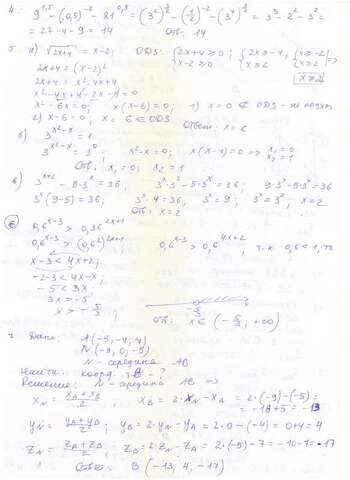 4. 9^{1,5} - (0,5)^{-2} - 81^{0,5} = (3^2)^{\frac{3}{2}} - (\frac{1}{2})^{-2} - (3^4)^{\frac{1}{2}} = 3^3 - 2^2 - 3^2 =
= 27 - 4 - 9 = 14 Отв: 14
5. а) \sqrt{2x+4} = x-2; ОДЗ: {2x+4 ≥ 0; x-2 ≥ 0 {2x ≥ -4, x ≥ 2 {x ≥ -2 x ≥ 2 =>
2x+4 = (x-2)^2 x ≥ 2
2x+4 = x^2-4x+4
x^2-4x+4-2x-4=0
x^2-6x=0; x(x-6)=0; 1) x=0 ∉ ОДЗ - не подх.
2) x-6=0; x=6 ∈ ОДЗ Ответ: x=6
б) 3^{x^2-x} = 1
3^{x^2-x} = 3^0; x^2-x=0; x(x-1)=0 => x_1=0 x_2=1
Отв: x_1=0; x_2=1
в) 3^{x+2} - 5·3^x = 36, 3^x·3^2 - 5·3^x = 36; 9·3^x - 5·3^x = 36
3^x(9-5) = 36; 3^x·4 = 36, 3^x = 9; 3^x = 3^2, x=2
Отв: x=2
6. 0,6^{x-3} > 0,36^{2x+1}
0,6^{x-3} > (0,6^2)^{2x+1} 0,6^{x-3} > 0,6^{4x+2}, т.к 0,6<1, то
x-3 < 4x+2;
-2-3 < 4x-x,
-5 < 3x
3x > -5
x > -\frac{5}{3}; -\frac{5}{3}
Отв: x ∈ (-\frac{5}{3}; +∞)
7. Дано: A(-5; -4; 7)
N(-9; 0; -5)
N - середина AB
Найти: коорд. т.B - ?
Решение: N - середина AB =>
x_N = \frac{x_A+x_B}{2}, x_B = 2·x_N - x_A = 2·(-9)-(-5) =
= -18+5 = -13
y_N = \frac{y_A+y_B}{2}; y_B = 2·y_N - y_A = 2·0-(-4) = 0+4 = 4
z_N = \frac{z_A+z_B}{2}; z_B = 2·z_N - z_A = 2·(-5)-7 = -10-7 = -17
Ответ: B(-13; 4; -17)